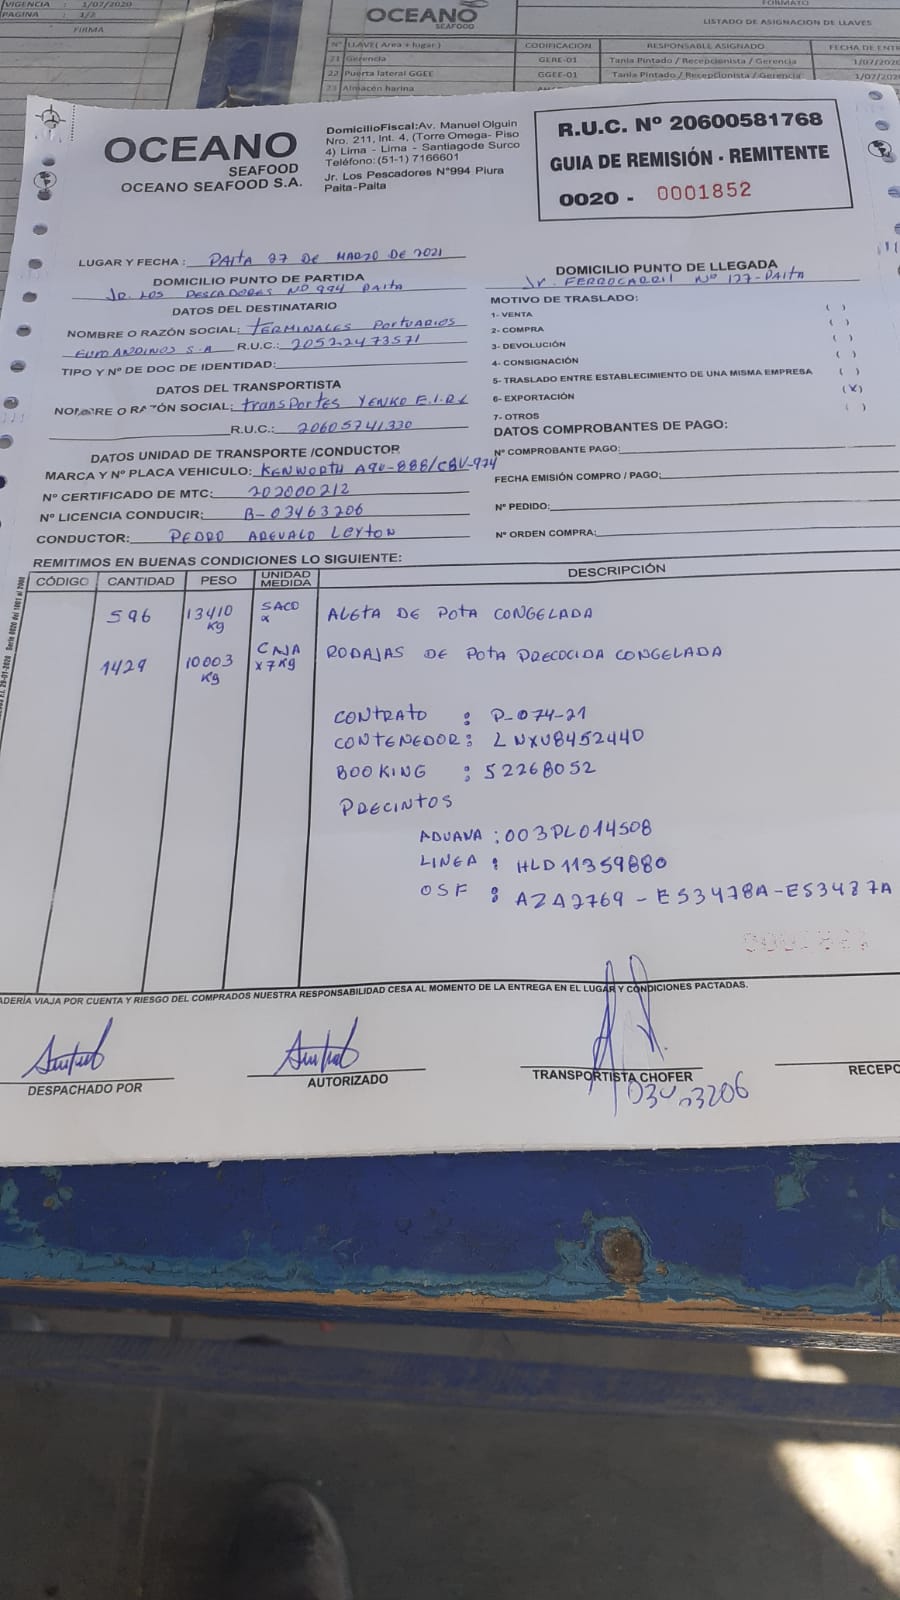 VIGENCIA : 1/07/2020
PAGINA : 1/2
FIRMA
OCEANO
SEAFOOD
FORMATO
LISTADO DE ASIGNACION DE LLAVES
N° LLAVE( Area + lugar ) CODIFICACION RESPONSABLE ASIGNADO FECHA DE ENT
21 Gerencia GERE-01 Tania Pintado / Recepcionista / Gerencia 1/07/2020
22 Puerta lateral GGEE GGEE-01 Tania Pintado / Recepcionista / Gerencia 1/07/2020
23 Almacén harina
OCEANO
SEAFOOD
OCEANO SEAFOOD S.A.
DomicilioFiscal:Av. Manuel Olguin
Nro. 211, Int. 4, (Torre Omega- Piso
4) Lima - Lima - Santiagode Surco
Teléfono:(51-1) 7166601
Jr. Los Pescadores N°994 Piura
Paita-Paita
R.U.C. Nº 20600581768
GUIA DE REMISIÓN - REMITENTE
0020 - 0001852
LUGAR Y FECHA : PAITA 27 DE MARZO DE 2021
DOMICILIO PUNTO DE PARTIDA
Jr. LOS PESCADORES Nº 994 PAITA
DATOS DEL DESTINATARIO
NOMBRE O RAZÓN SOCIAL: TERMINALES PORTUARIOS
EUROANDINOS S.A R.U.C.: 20522473571
TIPO Y Nº DE DOC DE IDENTIDAD:
DATOS DEL TRANSPORTISTA
NOMBRE O RAZÓN SOCIAL: transPortes YENKO E.I.RL
R.U.C.: 20605741330
DATOS UNIDAD DE TRANSPORTE /CONDUCTOR
MARCA Y Nº PLACA VEHICULO: KENWORTH A9U-888/CBV-974
Nº CERTIFICADO DE MTC: 202000212
Nº LICENCIA CONDUCIR: B-03463206
CONDUCTOR: PEDRO AREVALO LEYTON
DOMICILIO PUNTO DE LLEGADA
Jr. FERROCARRIL Nº 127-PAITA
MOTIVO DE TRASLADO:
1- VENTA ( )
2- COMPRA ( )
3- DEVOLUCIÓN ( )
4- CONSIGNACIÓN ( )
5- TRASLADO ENTRE ESTABLECIMIENTO DE UNA MISMA EMPRESA ( )
6- EXPORTACIÓN (X)
7- OTROS ( )
DATOS COMPROBANTES DE PAGO:
Nº COMPROBANTE PAGO:
FECHA EMISIÓN COMPRO / PAGO:
Nº PEDIDO:
Nº ORDEN COMPRA:
REMITIMOS EN BUENAS CONDICIONES LO SIGUIENTE:
CÓDIGO CANTIDAD PESO UNIDAD MEDIDA DESCRIPCIÓN
596 13410 Kg SACO x ALETA DE POTA CONGELADA
1429 10003 Kg CAJA x7Kg RODAJAS DE POTA PRECOCIDA CONGELADA
CONTRATO : P-074-21
CONTENEDOR: LNXU8452440
BOOKING : 52268052
PRECINTOS
ADUANA : 003PL014508
LINEA : HLD11359880
OSF : AZA2769 - ES3478A-ES3487A
ADERÍA VIAJA POR CUENTA Y RIESGO DEL COMPRADOS NUESTRA RESPONSABILIDAD CESA AL MOMENTO DE LA ENTREGA EN EL LUGAR Y CONDICIONES PACTADAS.
DESPACHADO POR
AUTORIZADO
TRANSPORTISTA CHOFER
RECEPC